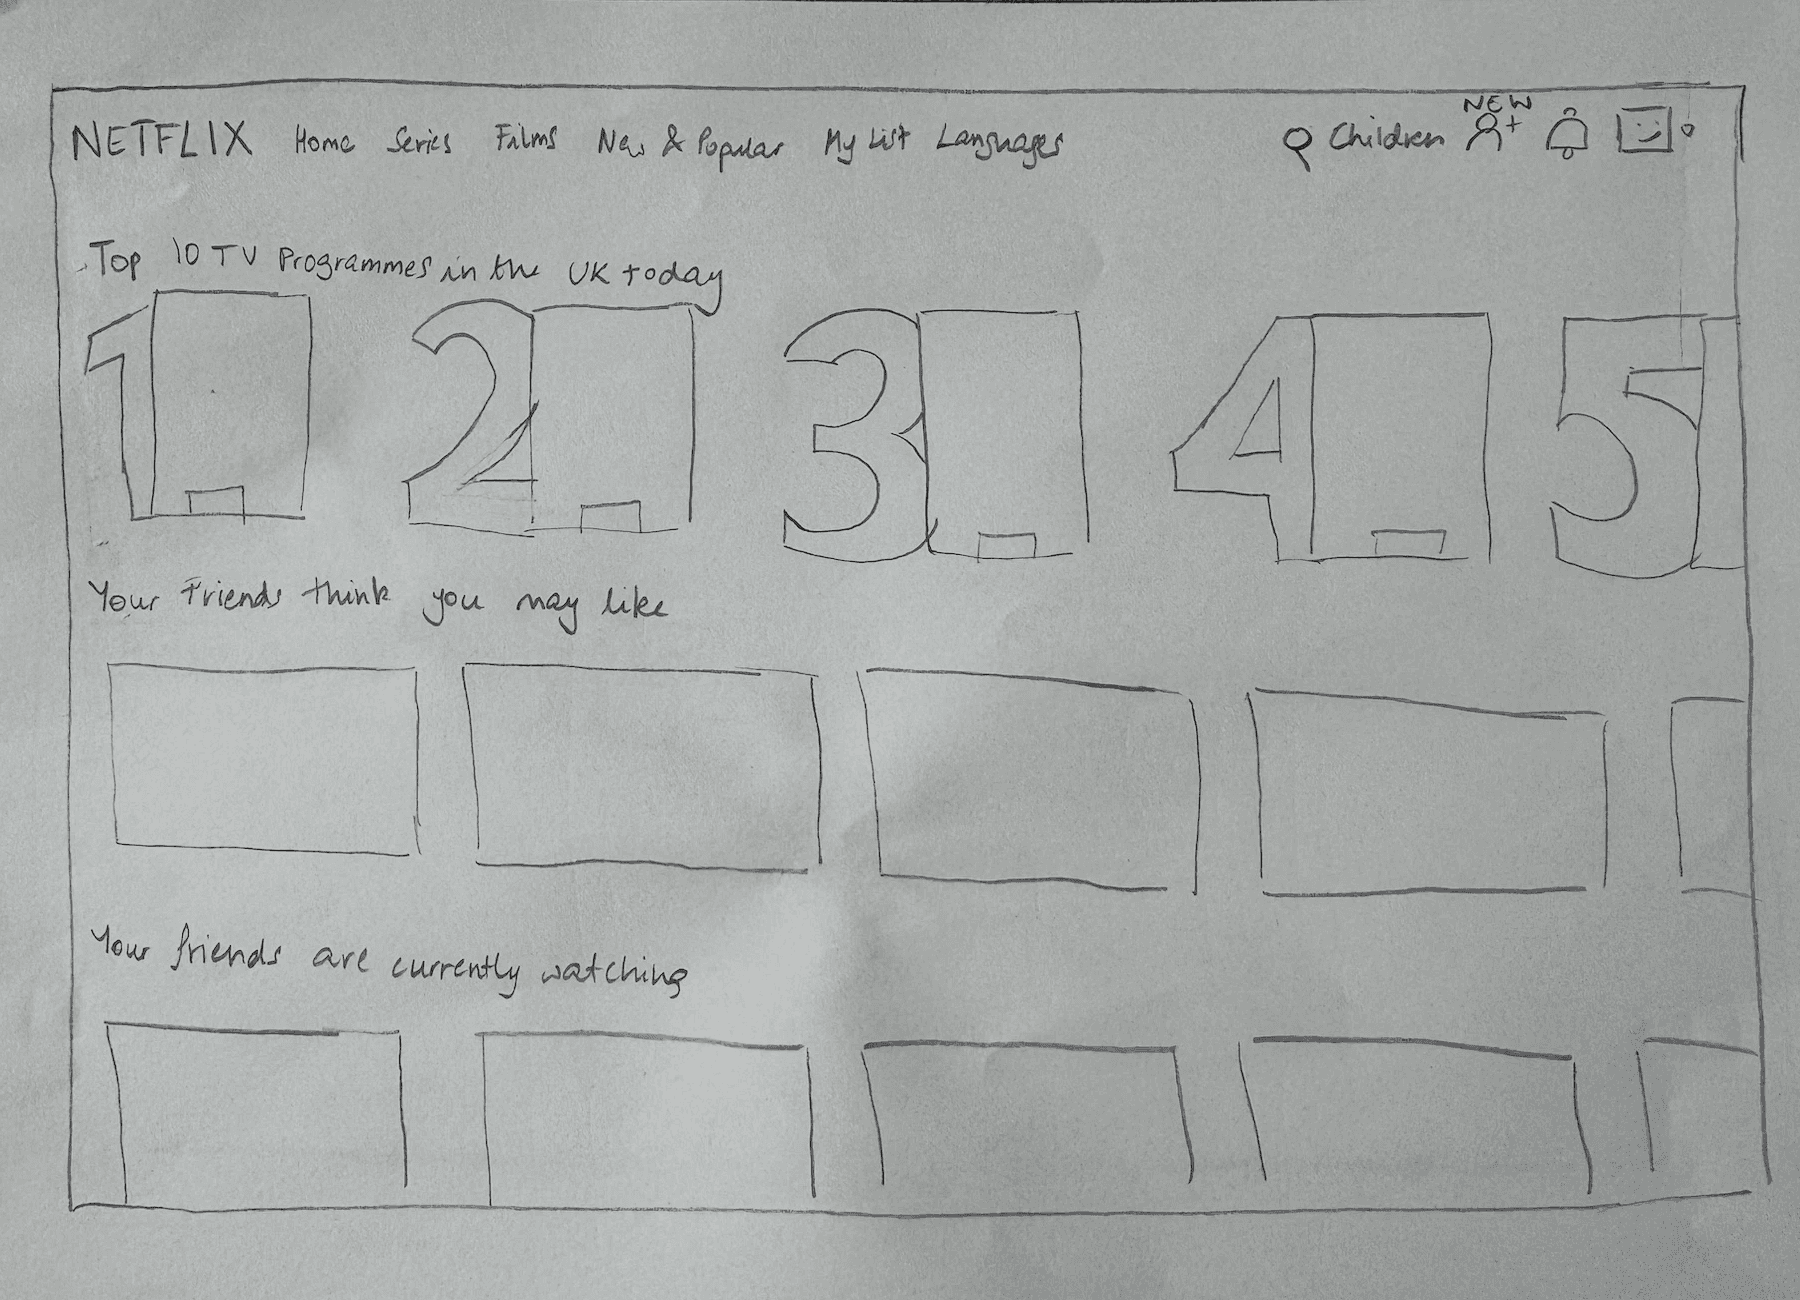 NEW
NETFLIX Home Series Films New & Popular My List Languages Children
Top 10 TV Programmes in the UK today
1 2 3 4 5
Your Friends think you may like
Your friends are currently watching